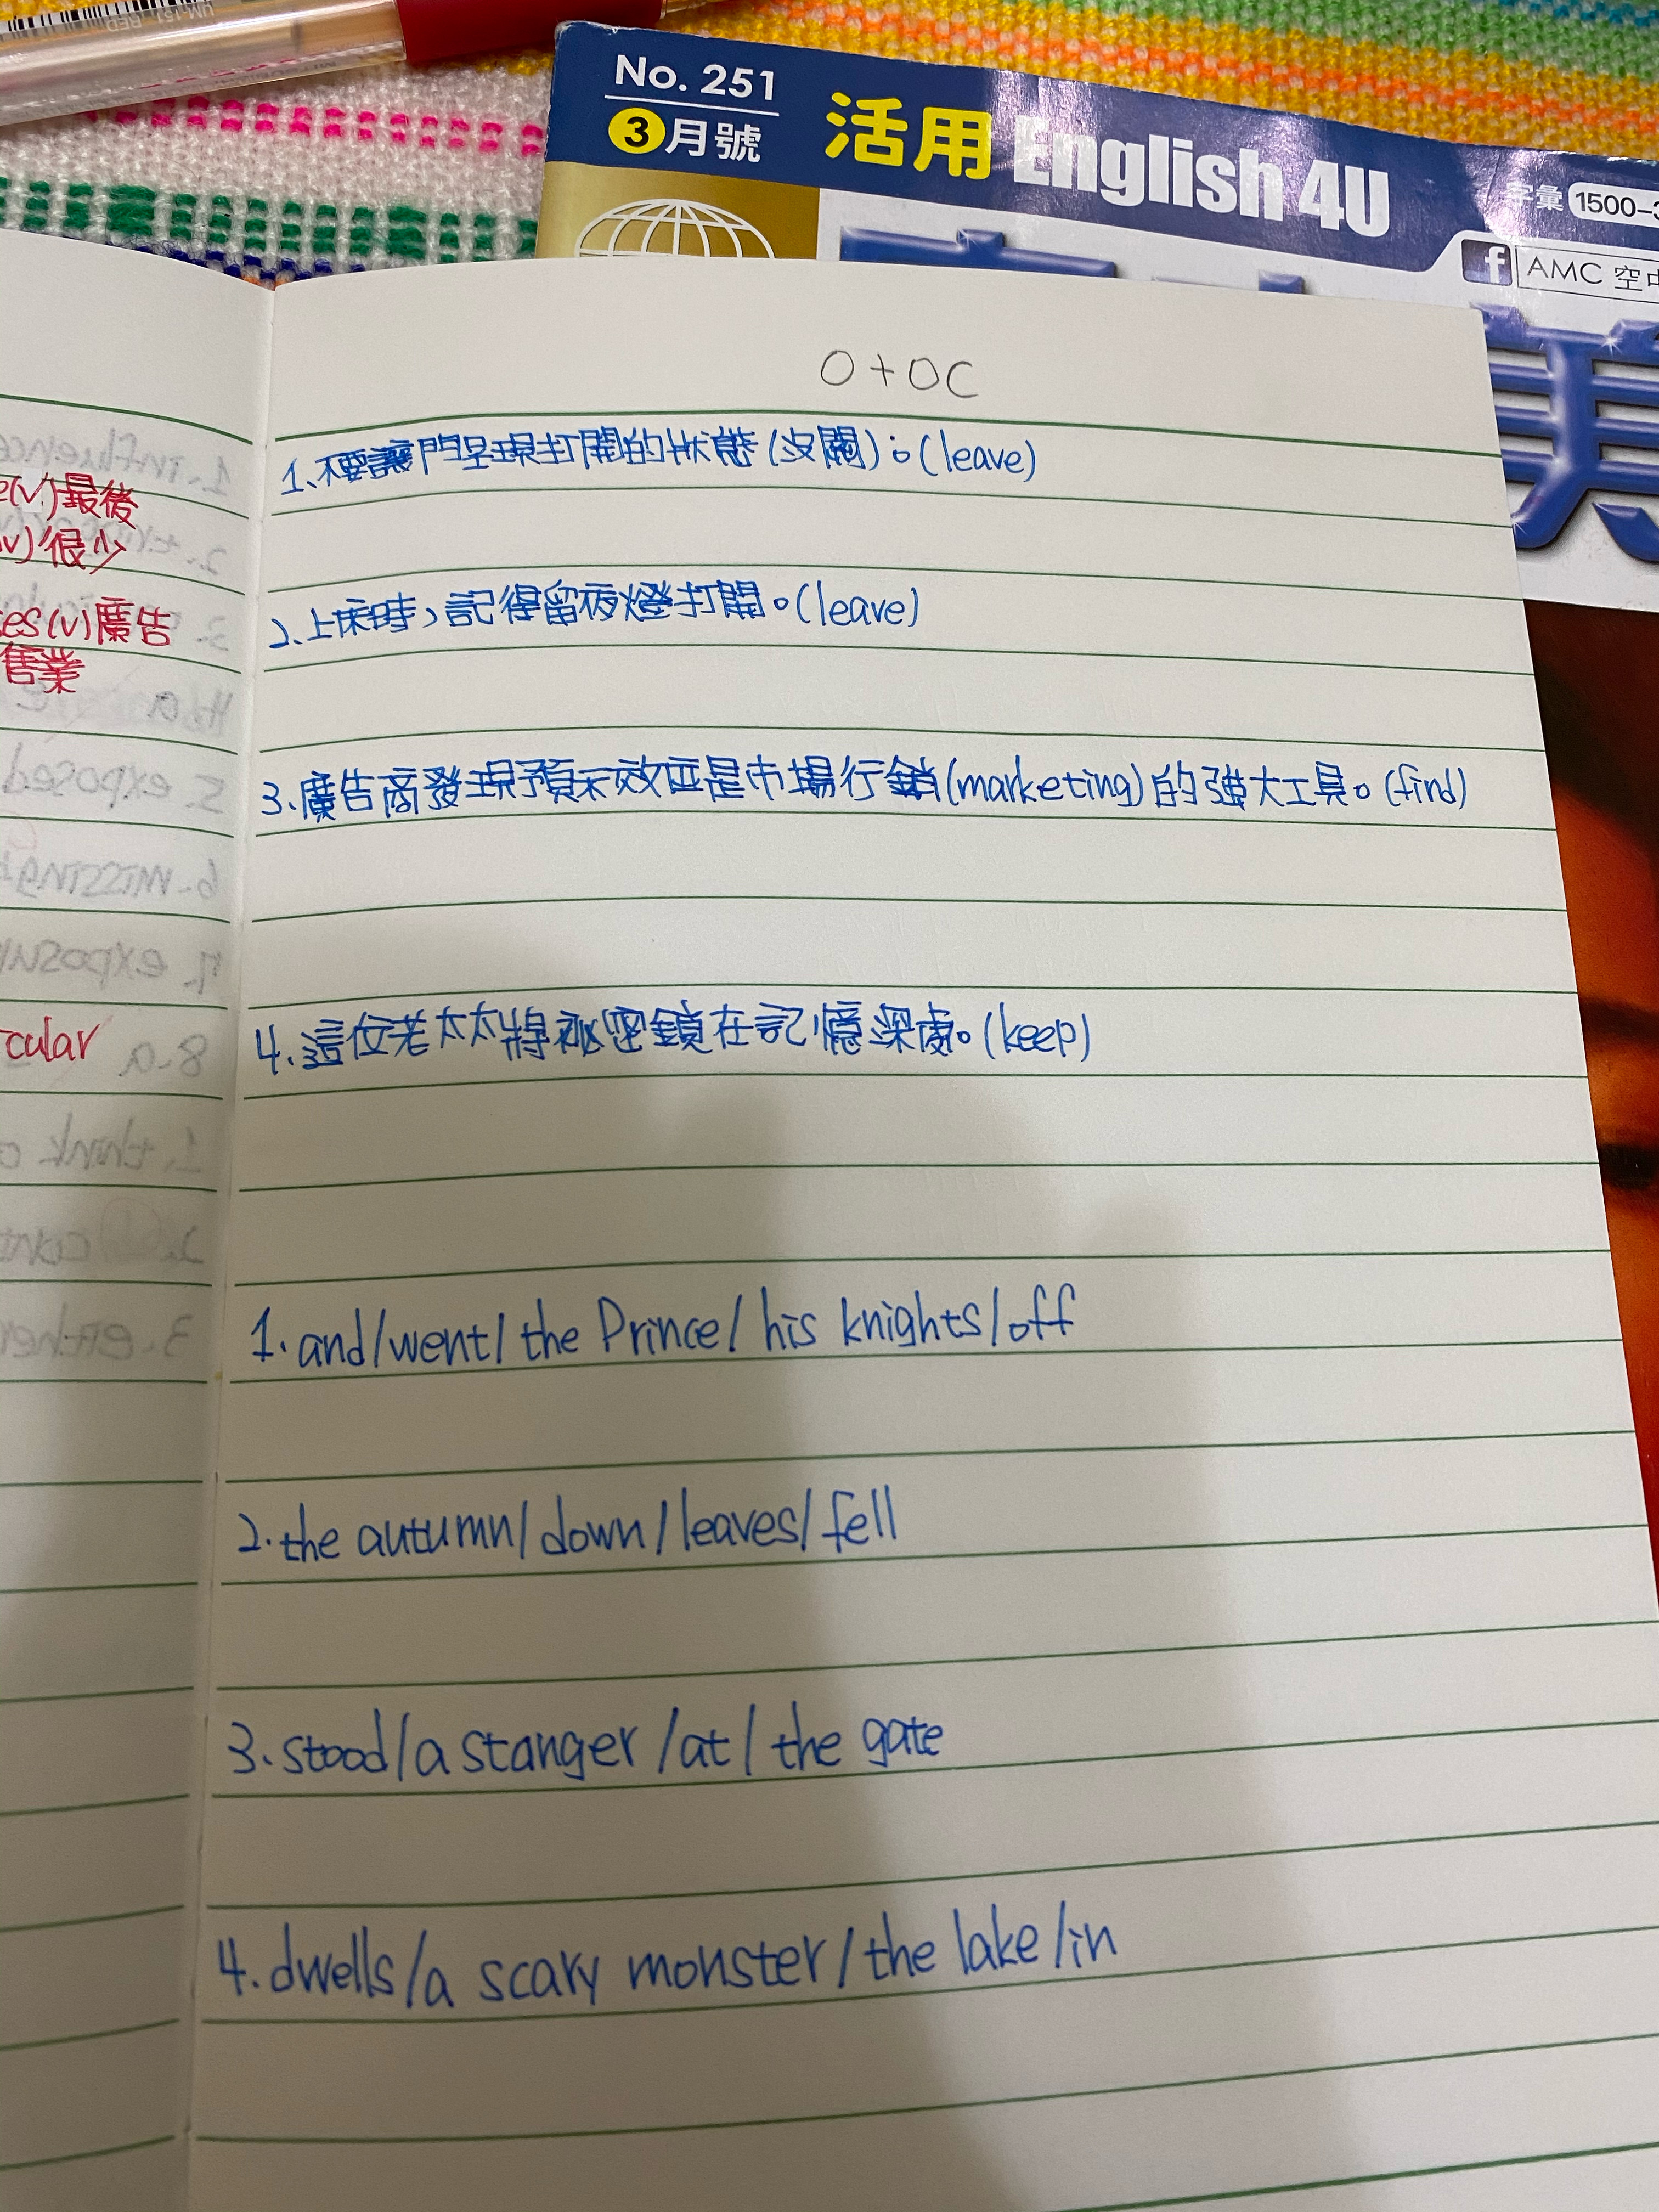 UM-151 RED
No. 251
3月號
活用 English 4U
字彙 1500-
f AMC 空中
英
O+OC
1、不要讓門呈現打開的狀態(沒關)。(leave)
2.上床時,記得留夜燈打開。(leave)
3.廣告商發現預示效應是市場行銷(marketing)的強大工具。(find)
4.這位老太太將祕密鎖在記憶深處。(keep)
1.and/went/the Prince/his knights/off
2.the autumn/down/leaves/fell
3.stood/a stanger/at/the gate
4.dwells/a scary monster/the lake/in
(v.)最後
v)很少
ses(v)廣告
售業
cular
1.influence
exposed
6.missing
7.exposu
8.a
1.think o
2.cont
3.either